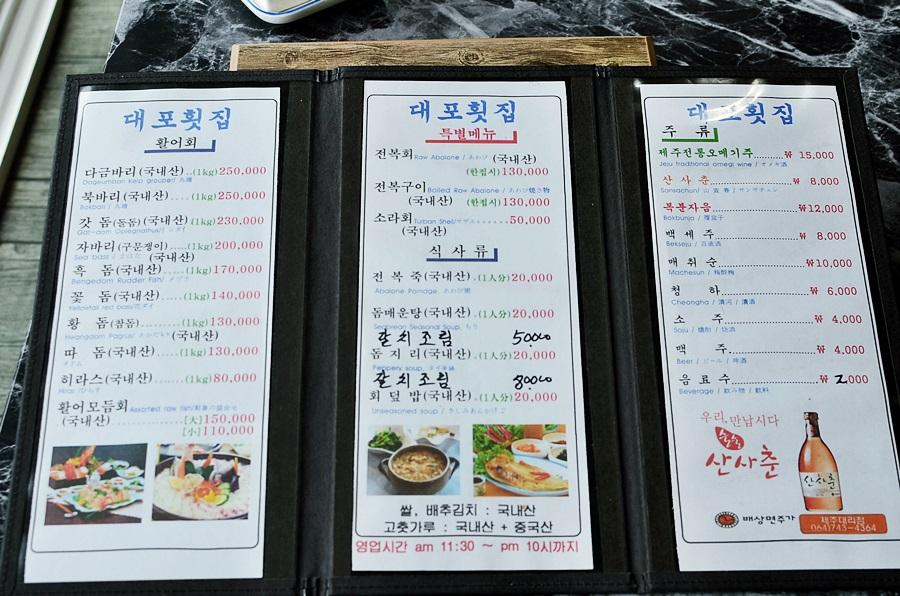 대포횟집
활어회
다금바리(국내산)..(1kg)250,000
북바리(국내산).....(1kg)250,000
Bakbari / 丸鱈
갓 돔(돌돔)(국내산)(1kg)230,000
자바리(구문쟁이)...(1kg)200,000
Sea bass / (국내산)
흑 돔(국내산)......(1kg)170,000
Bengedom Rudder Fah/ メジナ
꽃 돔(국내산).....(1kg)140,000
Yellowtail red bass/花ダイ
황 돔(참돔)........(1kg)130,000
(국내산)
따 돔(국내산)......(1kg)130,000
히라스(국내산)......(1kg)80,000
Hiras /ひらす
활어모듬회 Assorted raw fish/刺身の盛合せ
(국내산) [大]150,000
[小]110,000
대포횟집
특별메뉴
전복회 Raw Abalone / あわび (국내산)
(한접시)130,000
전복구이 Boiled Raw Abalone / あわび焼き物
(국내산) (한접시)130,000
소라회 Turban Shell/サザエ......50,000
(국내산)
식 사 류
전 복 죽(국내산)..(1人分)20,000
Abalone Porridge, あわび粥
돔매운탕(국내산)..(1人分)20,000
Seabream Seasonal Soup,
갈치조림 50000
돔 지 리(국내산)..(1人分)20,000
Peppery soup,
갈치조림 80000
회 덮 밥(국내산)..(1人分)20,000
Unseasoned soup /
쌀, 배추김치 : 국내산
고춧가루 : 국내산 + 중국산
영업시간 am 11:30 ~ pm 10시까지
대포횟집
주 류
제주전통오메기주........₩ 15,000
Jeju traditional omegi wine / オメギ酒
산 사 춘........₩ 8,000
Sansachun/ 山 査 春 / サンサチュン
복분자음........₩12,000
Bokbunja / 覆盆子
백 세 주........₩ 8,000
Bekseju / 百歳酒
매 취 순........₩10,000
Machesun / 梅酔醇
청 하........₩ 6,000
Cheongha / 清河 / 清酒
소 주........₩ 4,000
Soju / 燒酎 / 烧酒
맥 주........₩ 4,000
Beer / ビール / 啤酒
음 료 수........₩ 2,000
Beverage / 飲み物 / 飲料
우리, 만납시다
산사춘
산사춘
배상면주가
제주대리점
064)743-4364